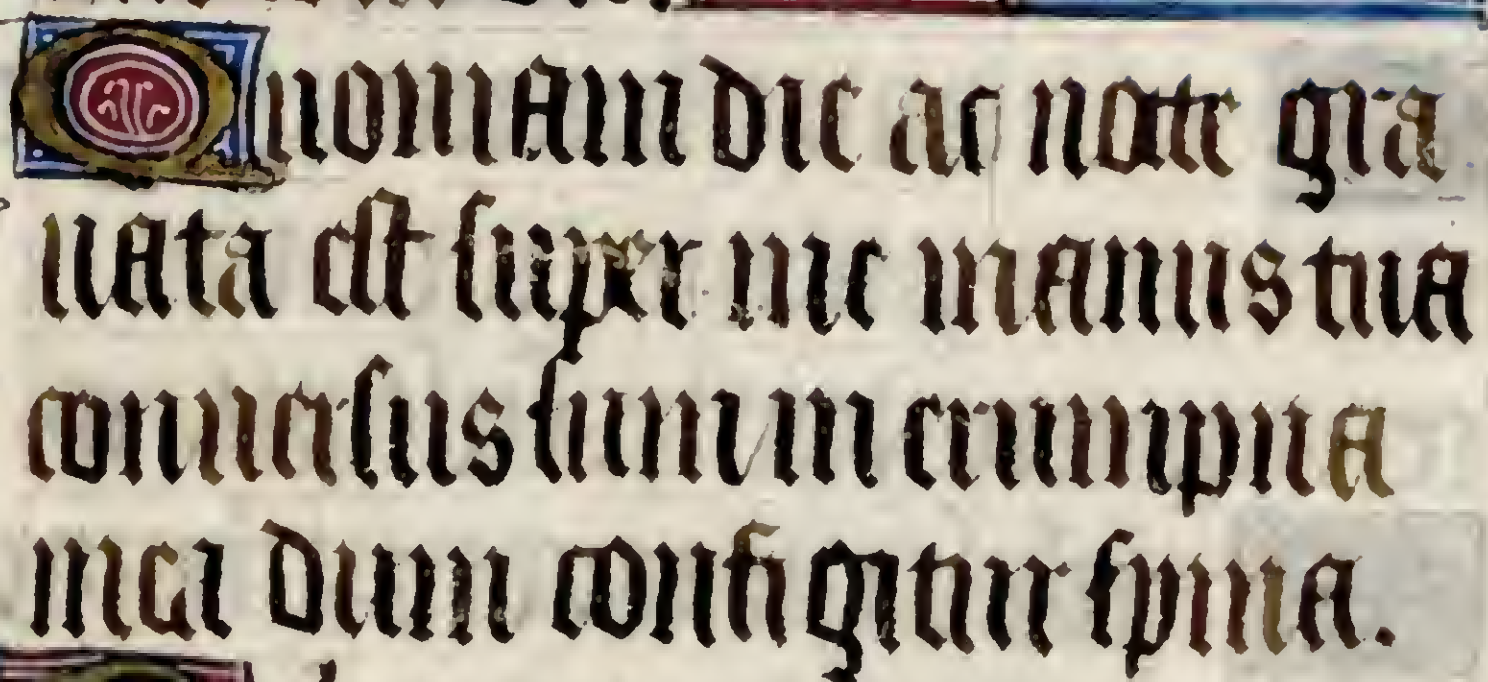 Quoniam die ac nocte gra
uata est super me manus tua
conuersus sum in erumpna
mea dum configitur spina.